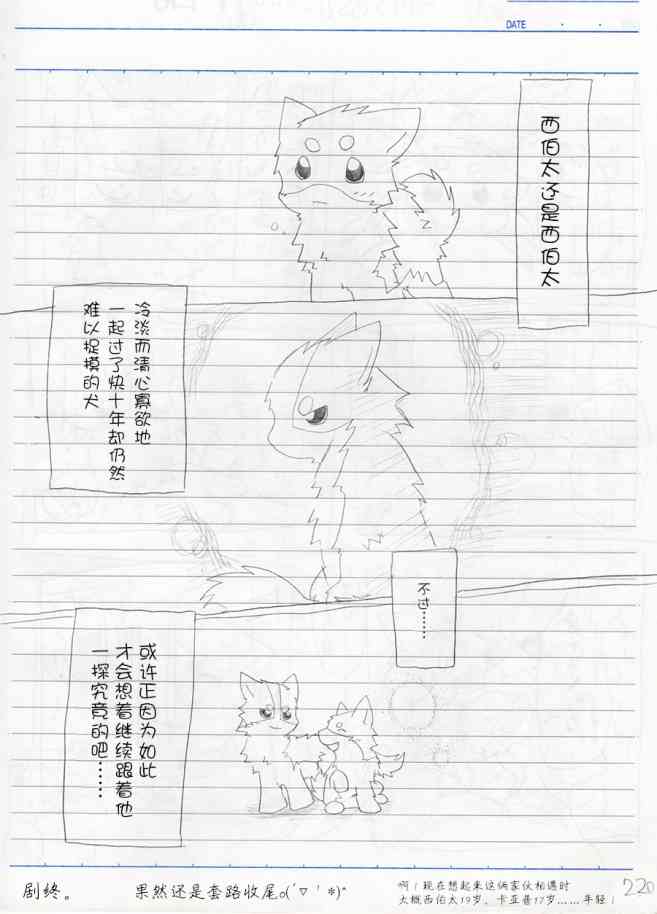 DATE
西伯太还是西伯太
冷淡而清心寡欲地
一起过了快十年却仍然
难以捉摸的犬
不过……
或许正因为如此
才会想着继续跟着他
一探究竟的吧……
剧终。
果然还是套路收尾o(´▽｀*)"
啊！现在想起来这俩家伙相遇时
大概西伯太19岁、卡亚普17岁……年轻！
220